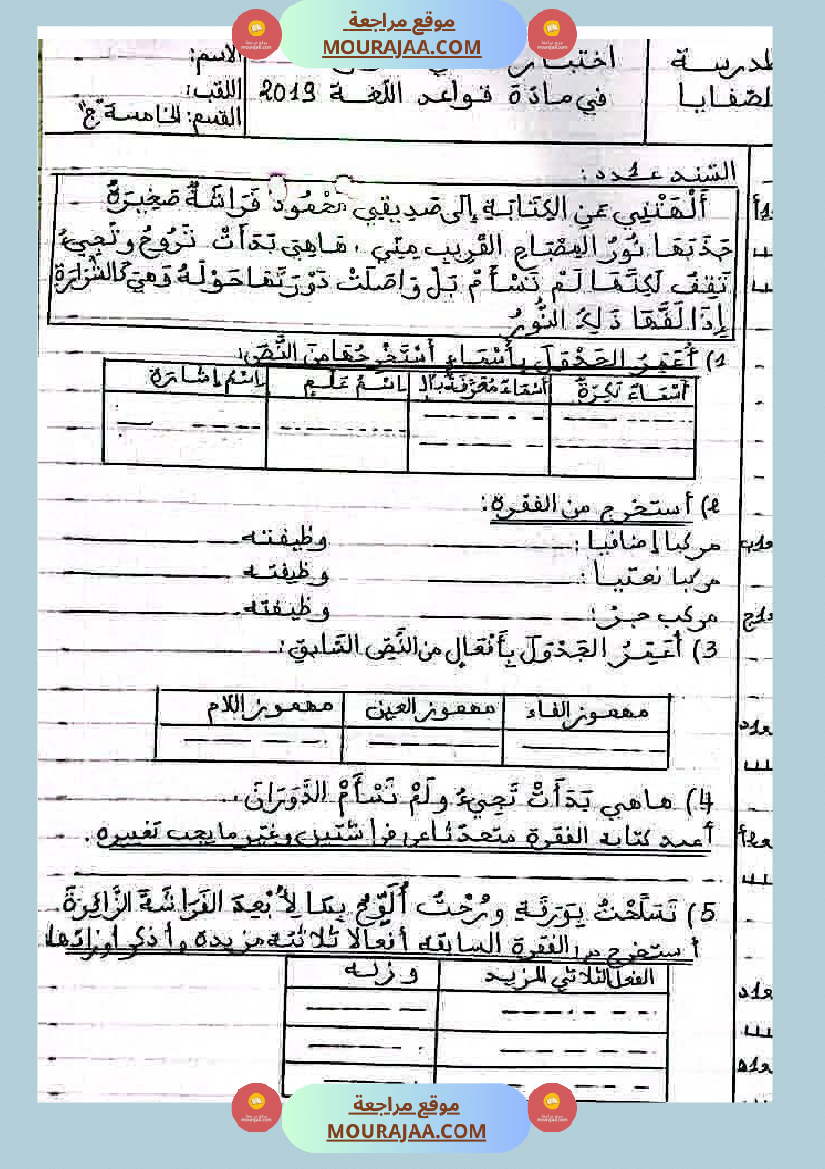 موقع مراجعة
MOURAJAA.COM
الاسم:
اللقب:
القسم: الخامسة "ج"
في مادة قواعد اللغة 2019
السند عدد 1:
أَلْهَتْنِي عَنِ الكِتَابَةِ إِلى صَدِيقِي مَحْمُود فَرَاشَةٌ صَغِيرَةٌ
جَذَبَهَا نُورُ المِصْبَاحِ القَرِيبِ مِنِّي . هَاهِيَ بَدَأَتْ تَرُوحُ وتَجِيءُ
تَقِفُ لَكِنَّهَا لَمْ تَسْأَمْ بَلْ وَاصَلَتْ دَوْرَتَهَا حَوْلَهُ وَهِيَ كَالشَّرَارَةِ
إِذَا لَفَّهَا ذَلِكَ النُّورُ
1) أُعَمِّرُ الجَدْوَلَ بِأَسْمَاءٍ أَسْتَخْرِجُهَا مِنَ النَّصِّ:
أَسْمَاءٌ نَكِرَةٌ أَسْمَاءٌ مُعَرَّفَةٌ بِالـ اِسْمُ عَلَمٍ اِسْمُ إِشَارَةٍ
2) أستخرج من الفقرة:
مركبا إضافيا: وظيفته
مركبا نعتيا: وظيفته
مركب جر: وظيفته
3) أُعَمِّرُ الجَدْوَلَ بِأَفْعَالٍ من النَّصِّ السَّابِقِ:
مهموز الفاء مهموز العين مهموز اللام
4) هاهي بَدَأَتْ تَجِيءُ ولَمْ تَسْأَمْ الدَّوَرَانَ.
أعيد كتابة الفقرة متحدثا عن فراشتين وغير ما يجب تغييره.
5) تَسَلَّحْتُ بِوَرَقَةٍ ورُحْتُ أُلَوِّحُ بِهَا لِأُبْعِدَ الفَرَاشَةَ الزَّائِرَةَ.
أستخرج من الفقرة السابقة أفعالا ثلاثية مزيدة وأذكر أوزانها
الفعل الثلاثي المزيد وزنه
موقع مراجعة
MOURAJAA.COM